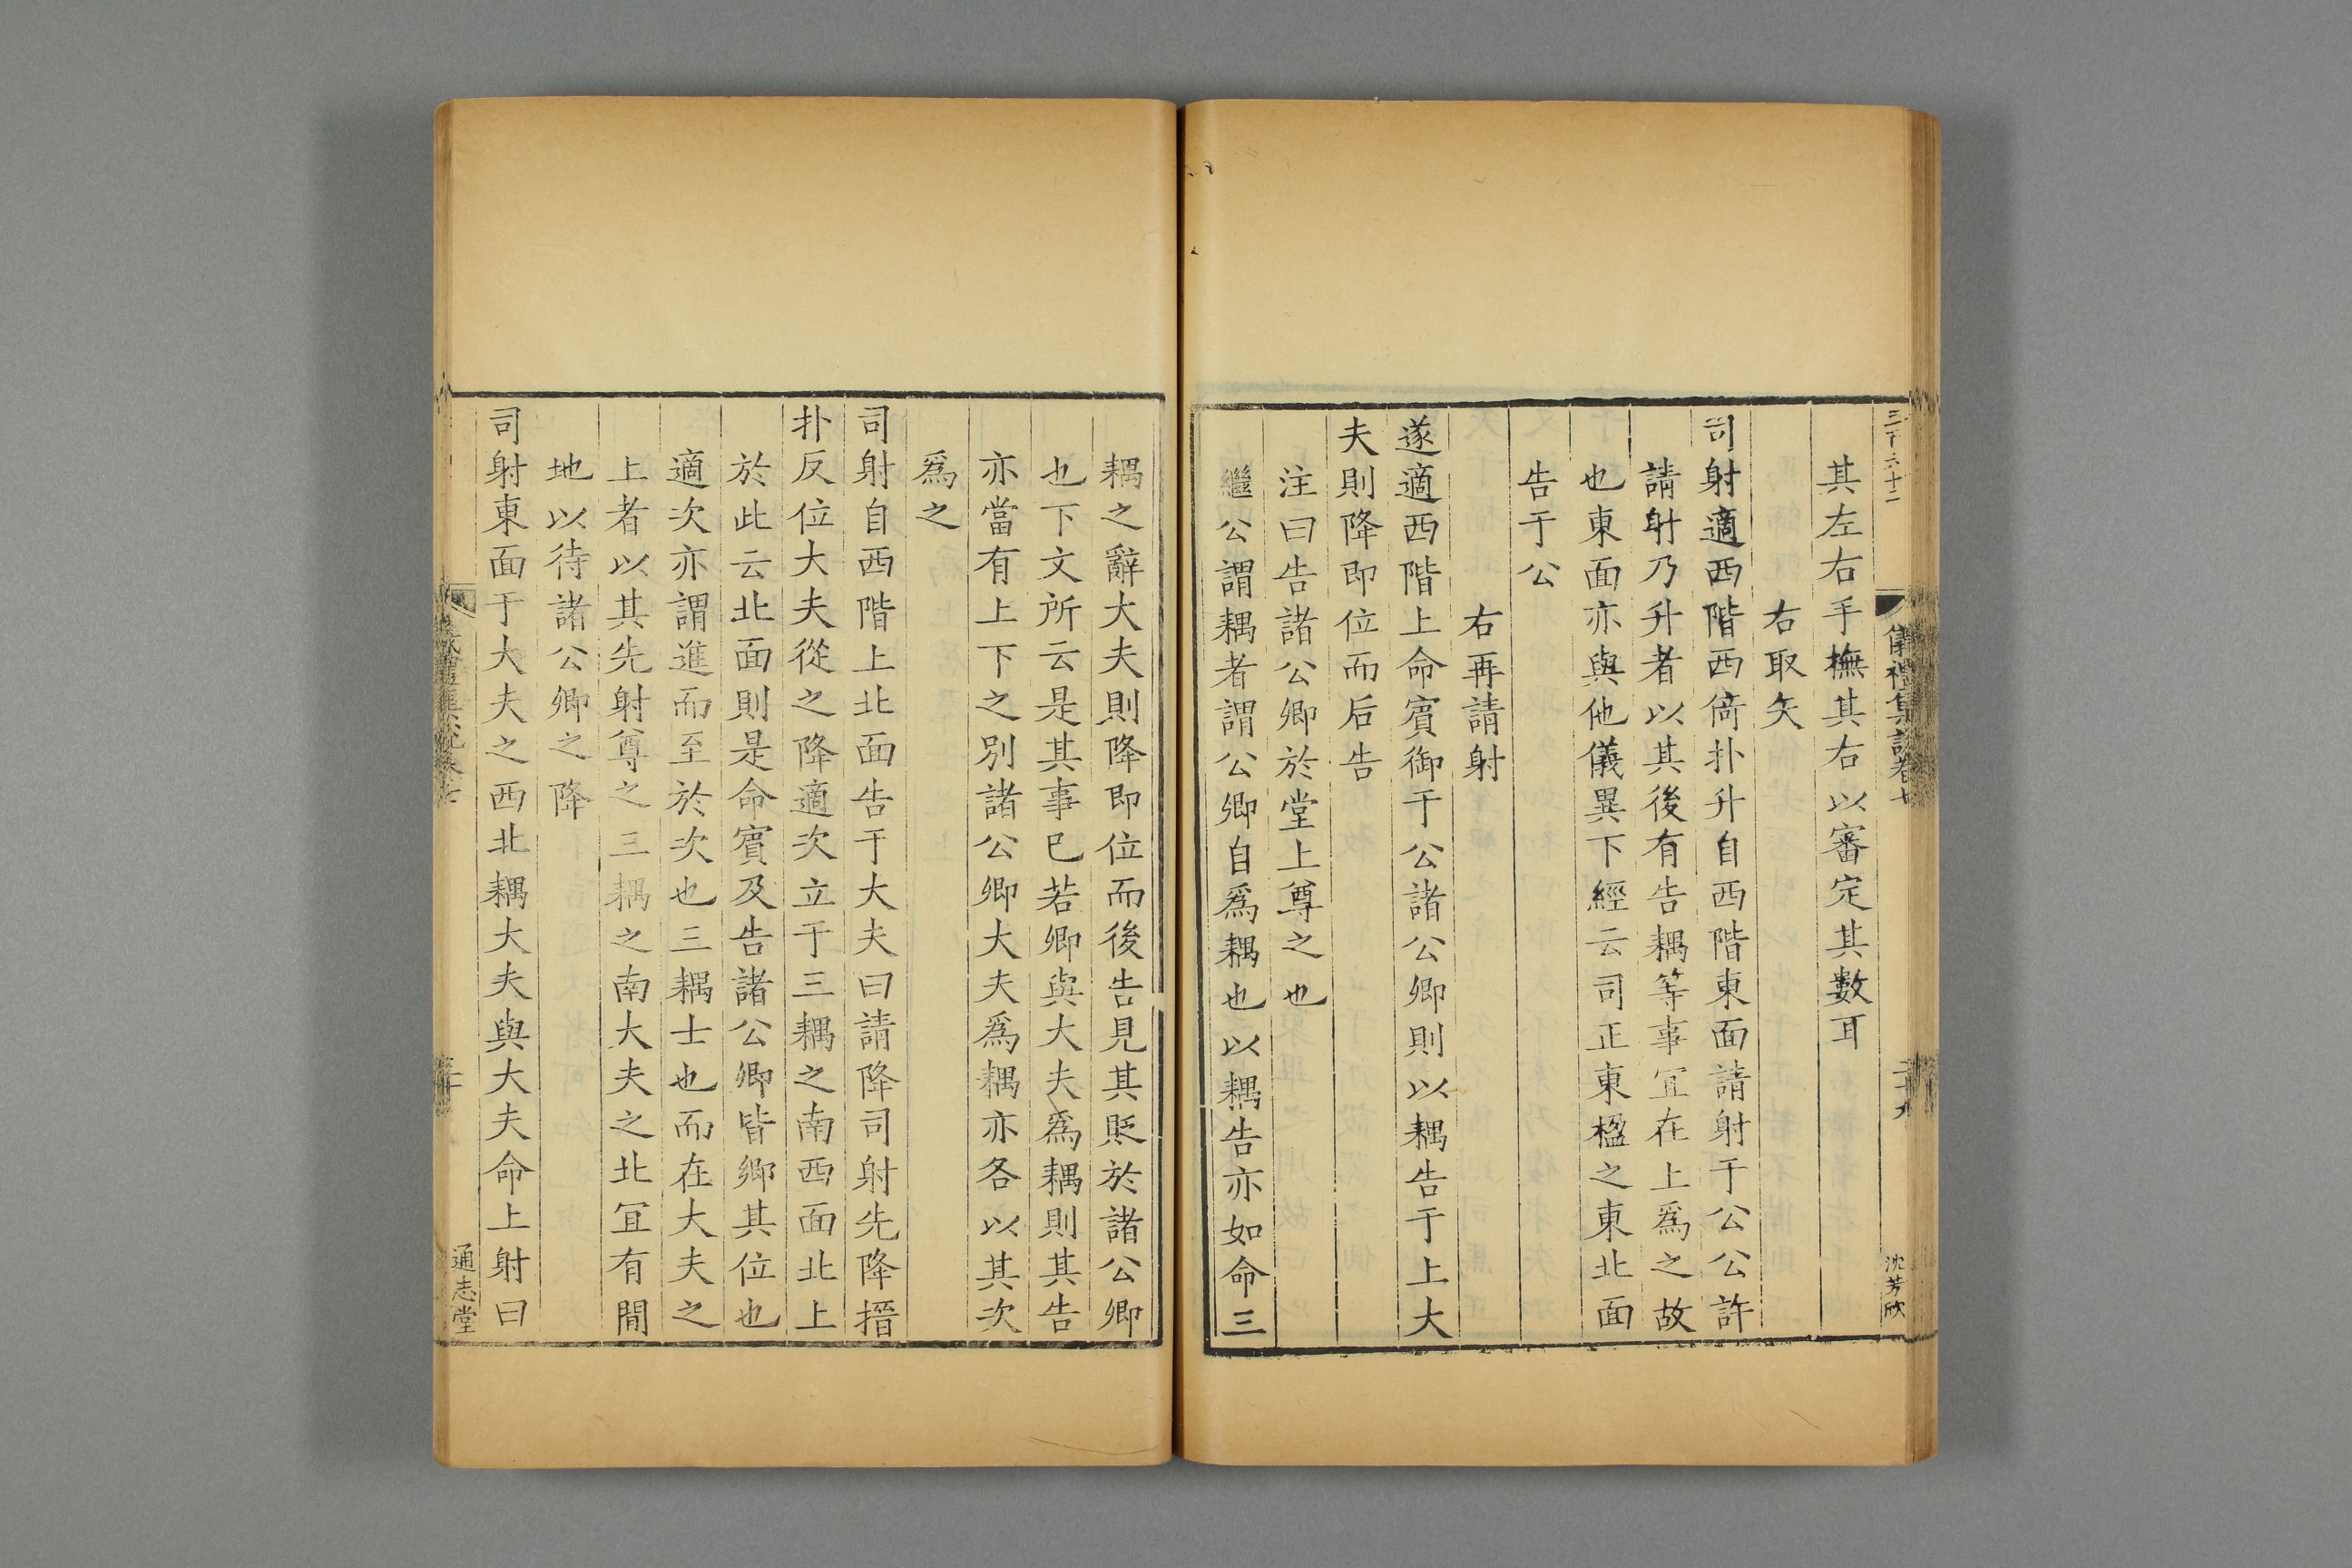 三百六十二
儀禮集說卷七
二十九
沈芳欣
其左右手撫其右以審定其數耳
右取矢
司射適西階西倚扑升自西階東面請射于公公許
請射乃升者以其後有告耦等事冝在上爲之故
也東面亦與他儀異下經云司正東楹之東北面
告于公
右再請射
遂適西階上命賓御于公諸公卿則以耦告于上大
夫則降即位而后告
注曰告諸公卿於堂上尊之也
繼公謂耦者謂公卿自爲耦也以耦告亦如命三
耦之辭大夫則降即位而後告見其貶於諸公卿
也下文所云是其事已若卿與大夫爲耦則其告
亦當有上下之別諸公卿大夫爲耦亦各以其次
爲之
司射自西階上北面告于大夫曰請降司射先降搢
扑反位大夫從之降適次立于三耦之南西面北上
於此云北面則是命賓及告諸公卿皆鄉其位也
適次亦謂進而至於次也三耦士也而在大夫之
上者以其先射尊之三耦之南大夫之北冝有閒
地以待諸公卿之降
司射東面于大夫之西北耦大夫與大夫命上射曰
通志堂